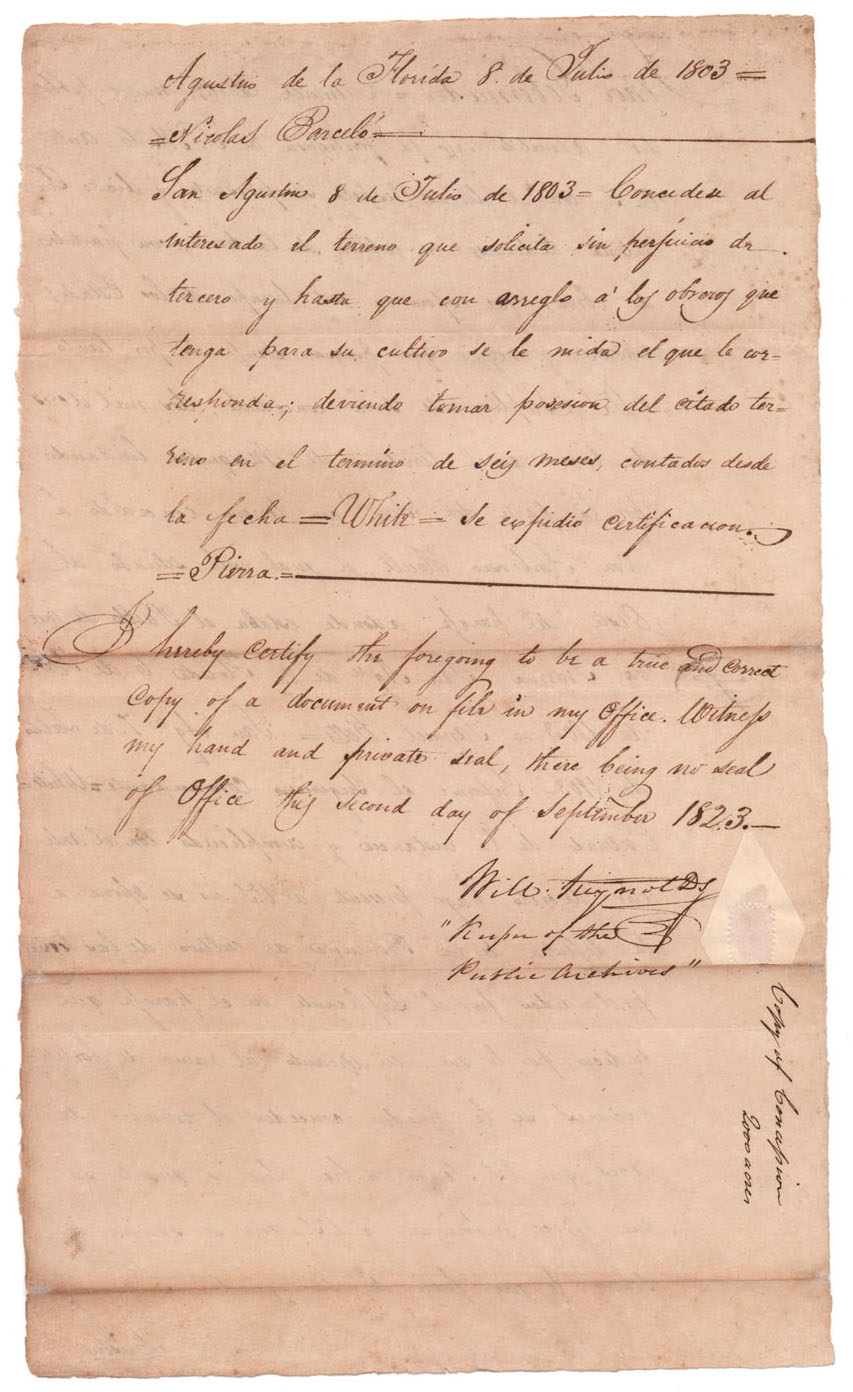 Agustin de la Florida 8 de Julio de 1803 =
= Nicolas Barceló =
San Agustin 8 de Julio de 1803 = Concedese al
interesado el terreno que solicita sin perjuicio de
tercero y hasta que con arreglo á los obreros que
tenga para su cultivo se le mida el que le cor=
responda; deviendo tomar posesion del citado ter=
reno en el termino de seis meses, contados desde
la fecha = White = Se expidió certificacion.
= Pierra. =
I hereby certify the foregoing to be a true and correct
copy of a document on file in my Office. Witness
my hand and private seal, there being no seal
of Office this second day of September 1823.—
Will. Reynolds
"Keeper of the
Public Archives"
Copy of Concession
2000 acres